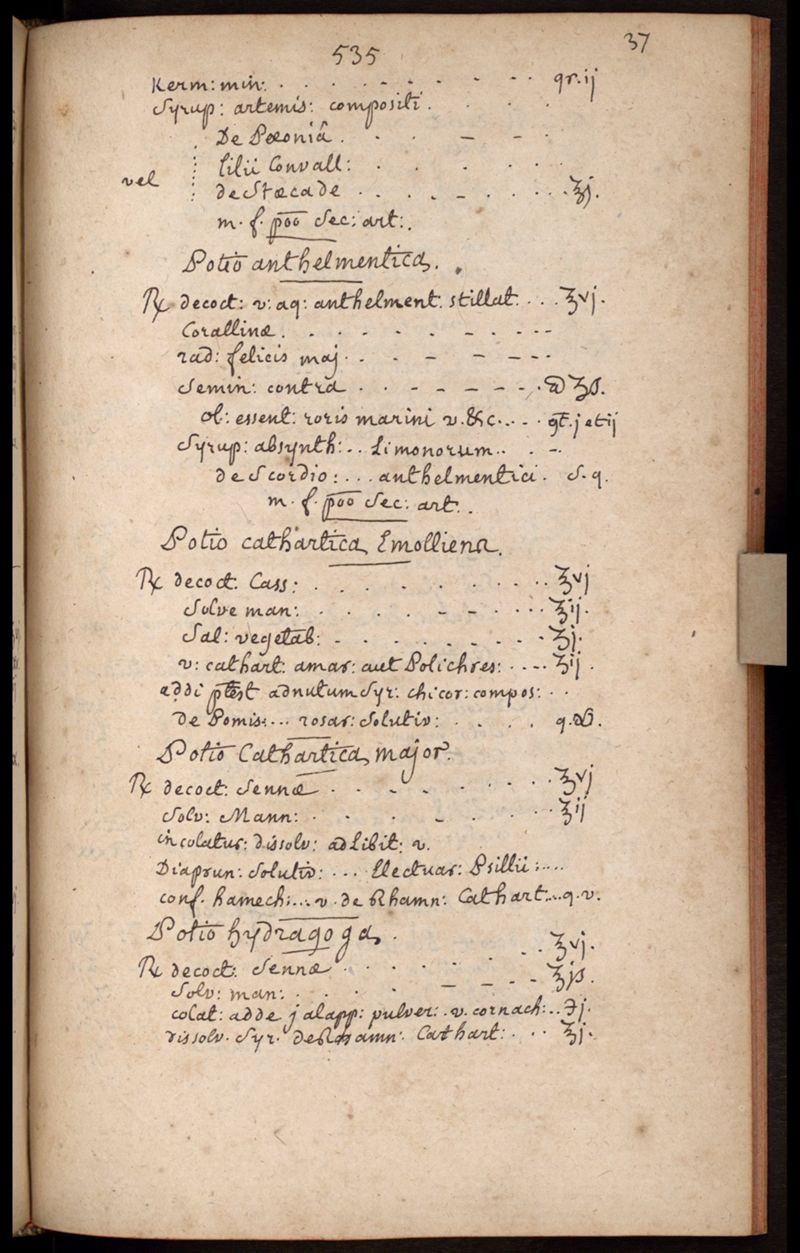 535
37
Kerm: min: . . . . . . . . . . gr.ij
Syrup: artemis: compositi . . . .
De Poeonia . . . — — .
vel lilii Convall: . . . . .
de Stæcade . . . . . . . . . ʒj.
m. f. poo Sec: art:.
Potio anthelmentica.
℞ decoct: v: aq: anthelment: stillat: . . . ℥vj.
Corallinæ . . . . . . . . .
rad: felicis maj . . — — . .
Semin: contra . . . . . . . . ā ʒß.
ol: essent: roris marini v. &c. . . . gt. j et ij
Syrup: absynth: . . Limonorum . . . -
de Scordio: . . . anthelmentici . S. q.
m. f. poo Sec: art. .
Potio cathartica, Emolliens.
℞ decoct: Cass: . . . . . . . . . ℥vj
Solve man: . . . . . . . . . ℥ij.
Sal: vegetab: . . . . . . . . ʒj.
v: cathart: amar: aut Polichres: . . . . ʒij.
addi ptest ad nutum Syr: chicor: compos: . .
De Pomis: . . . rosar: Solutiv: . . . . q.
Potio Cathartica, major.
℞ decoct: Sennæ . . . . . . . ℥vj
Solv: Mann: . . . . . . . ℥ij
in colatur: dissolv: ad Libit: v.
Diaprun: Solutiv: . . . Electuar: Psillii: . . . .
conf. hamech: . . . v. de Rhamn: Cathart: . . q. v.
Potio hydragoga .
℞ decoct: Sennæ . . . . . . ℥vj.
Solv: man: . . . . . . . . ℥jß.
colat: adde jalapp: pulver: . v. cornach: . . ℈j.
dissolv. Syr. de Rhamn: Cathart: . . . ℥j.